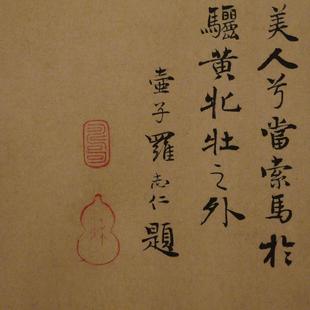 美人兮當索馬於
驪黃牝牡之外
壺子羅志仁題